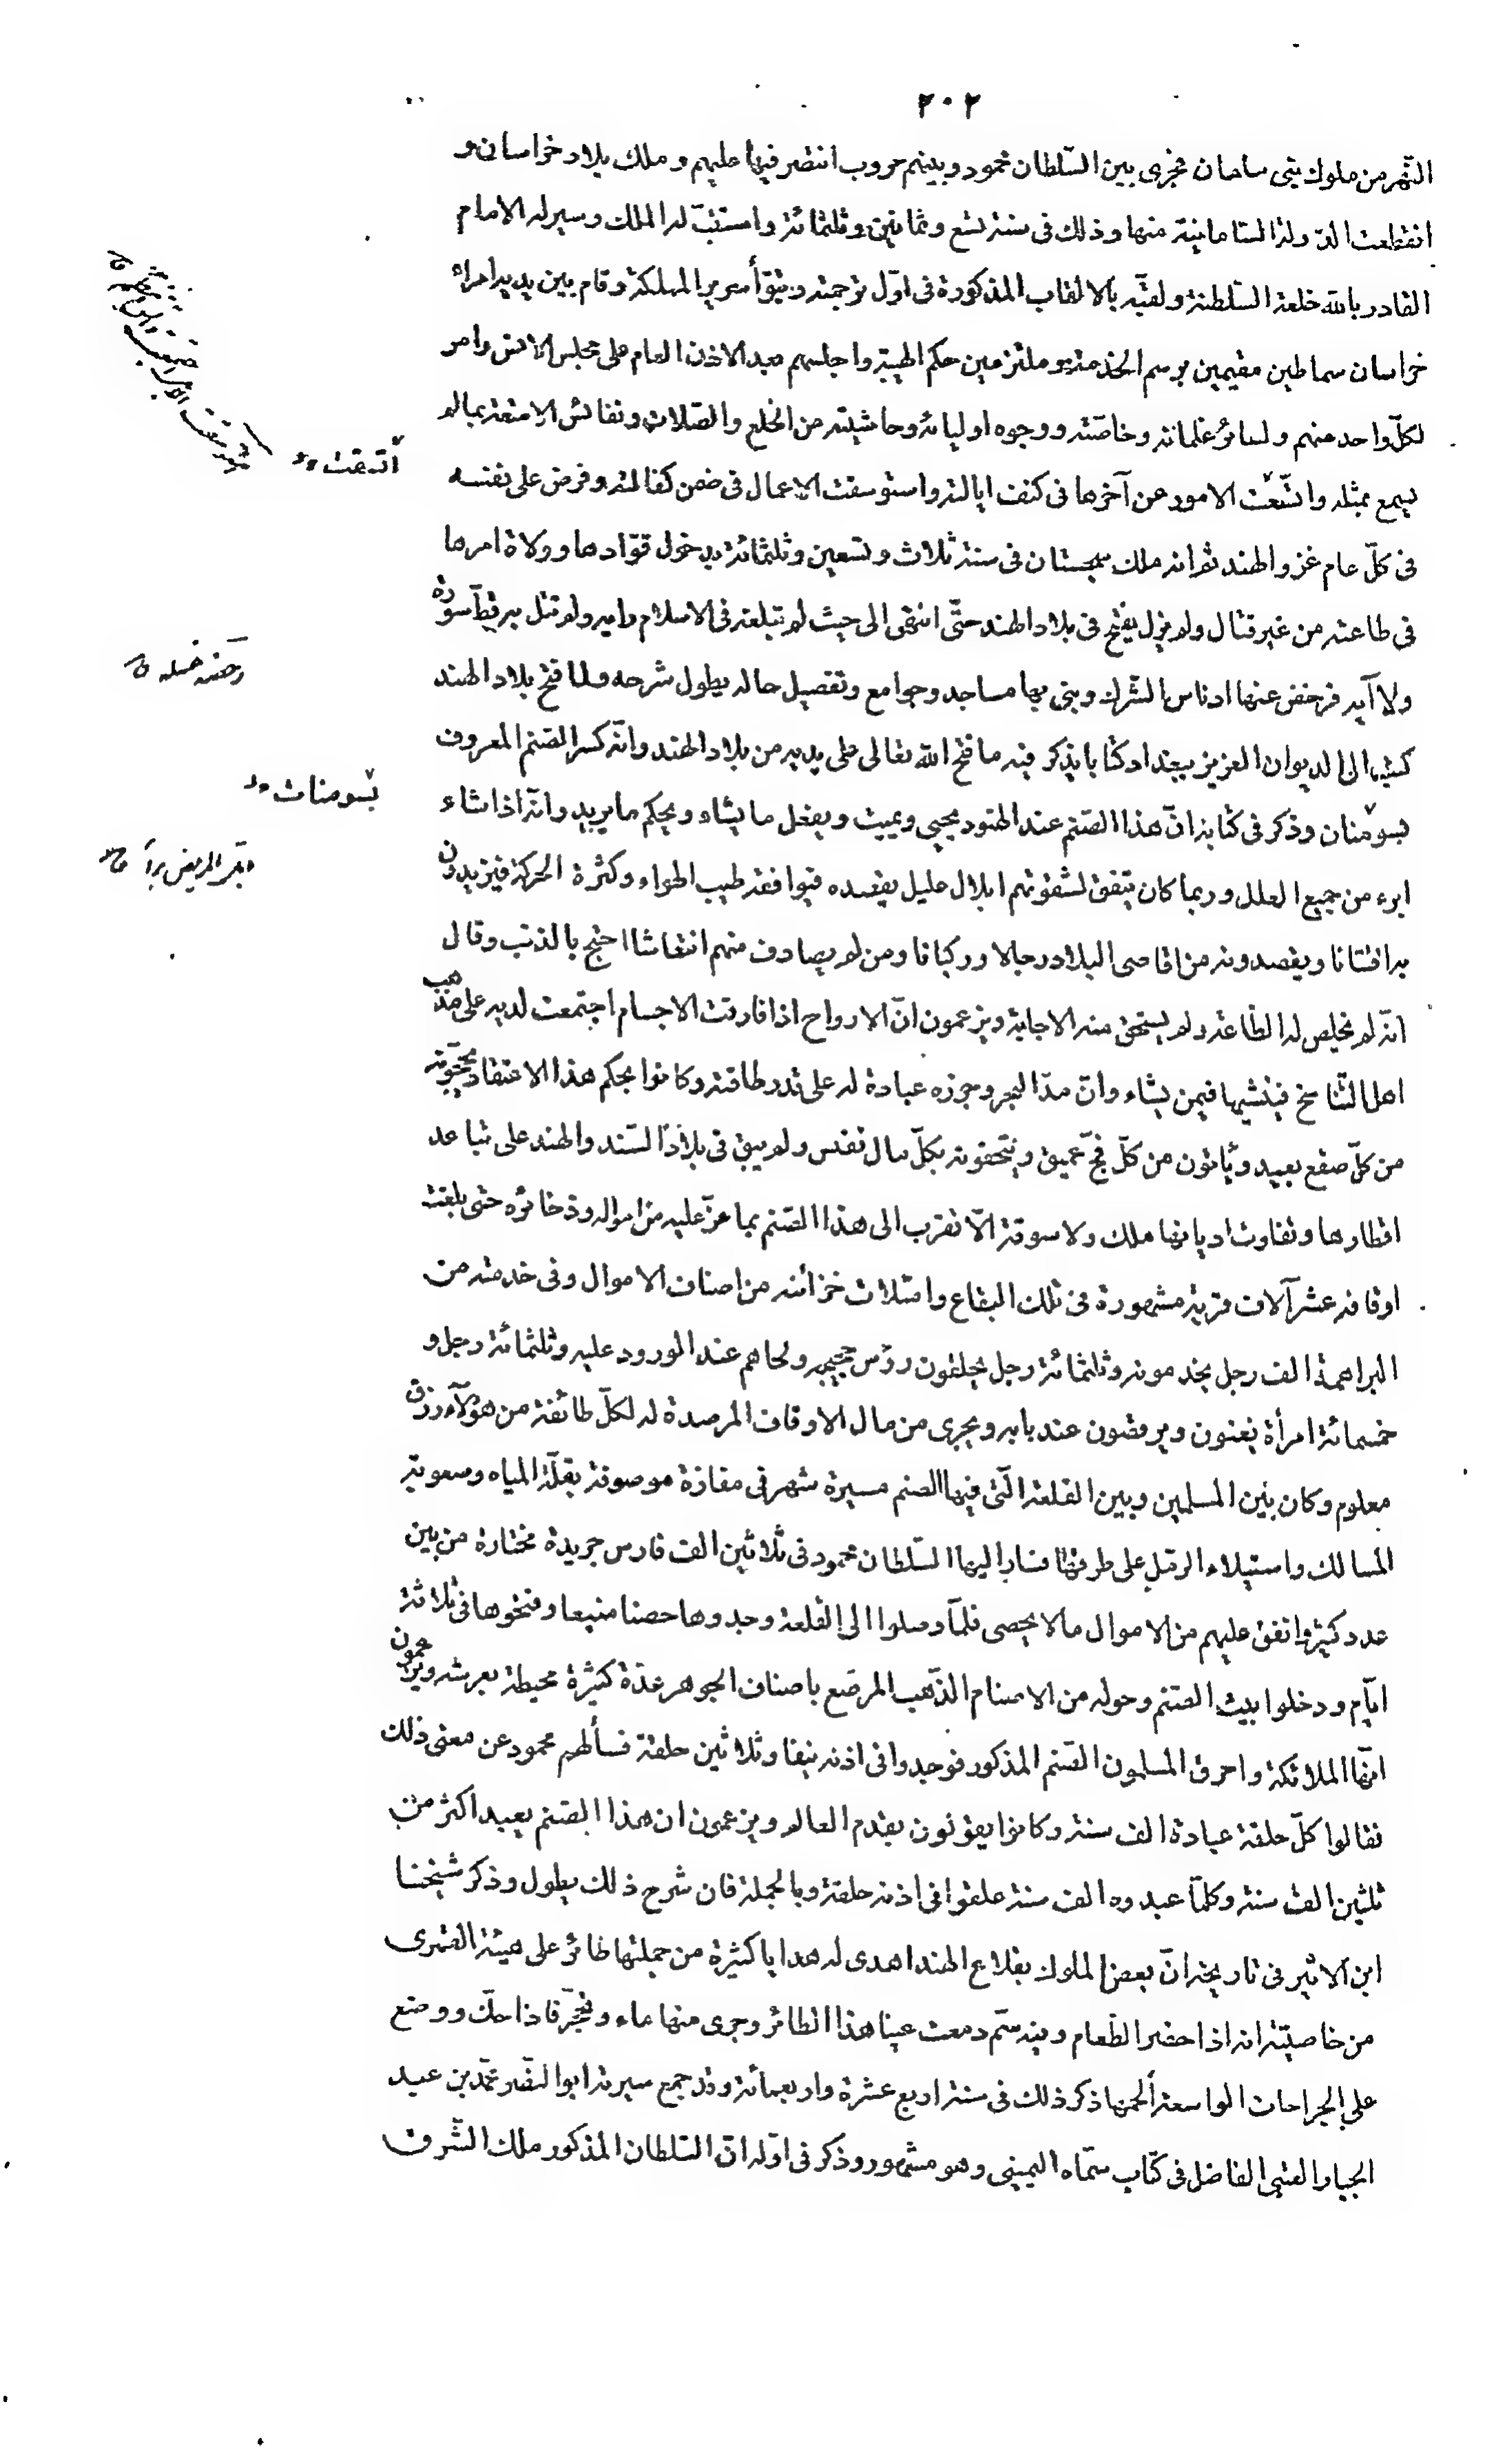 ٢٠٢
النّهر من ملوك بنى سامان فجرى بين السّلطان محمود وبينهم حروب انتصر فيها عليهم وملك بلاد خراسان و
انقطعت الدّولة السّامانيّة منها وذلك فى سنة تسع وثمانين وثلثمائة واستتبّ له الملك وسيّر له الامام
القادر بالله خلعة السّلطنة ولقبّه بالالقاب المذكورة فى اوّل ترجمته وتبوّأ سرير المملكة وقام بين يديه امراء
خراسان سماطين مقيمين برسم الخدمة وملتزمين حكم الهيبة واجلسهم بعد الاذن العام على مجلس الانس وامر
لكلّ واحد منهم ولسائر غلمانه وخاصّته ووجوه اوليائه وحاشيته من الخلع والصّلات ونفائس الامتعة بما لم
يسمع بمثله واتّسعت الامور عن آخرها فى كنف ايالته واستوسقت الاعمال فى ضمن كفالته وفرض على نفسه
فى كلّ عام غزو الهند ثم انه ملك سجستان فى سنة ثلاث وتسعين وثلثمائة بدخول قوّادها وولاة امرها
فى طاعته من غير قتال ولم يزل يفتح فى بلاد الهند حتّى انتهى الى حيث لم تبلغه فى الاسلام راية ولم تتل به قطّ سورة
ولا آية فرحض عنها ادناس الشّرك وبنى بها مساجد وجوامع وتفصيل حاله يطول شرحه ولما فتح بلاد الهند
كتب الى الديوان العزيز ببغداد كتابا يذكر فيه ما فتح الله تعالى على يديه من بلاد الهند وانّه كسر الصّنم المعروف
بسومنات وذكر فى كتابه انّ هذا الصّنم عند الهنود يحيى ويميت ويفعل ما يشاء ويحكم ما يريد وانّه اذا شاء
ابرء من جميع العلل وربما كان يتفق لشقوتهم ابلال عليل يقصده فيوافقه طيب الهواء وكثرة الحركة فيزيدون
به افتتانا ويقصدونه من اقاصى البلاد رجالا وركبانا ومن لم يصادف منهم انتعاشا احتج بالذنب وقال
انّه لم يخلص له الطّاعة ولم يستحق منه الاجابة ويزعمون انّ الارواح اذا فارقت الاجسام اجتمعت لديه على مذهب
اهل التّناسخ فينشيها فيمن يشاء وانّ مدّ البحر وجزره عبادة له على قدر طاقته وكانوا بحكم هذا الاعتقاد يحجّونه
من كلّ صقع بعيد ويأتون من كلّ فجّ عميق ويتحفونه بكلّ مال نفيس ولم يبق فى بلاد السّند والهند على تباعد
اقطارها وتفاوت اديانها ملك ولا سوقة الّا تقرب الى هذا الصّنم بما عزّ عليه من امواله وذخائره حتى بلغت
اوقافه عشر آلاف قرية مشهورة فى تلك البقاع وامتلات خزائنه من اصناف الاموال وفى خدمته من
البراهمة الف رجل يخدمونه وثلثمائة رجل يحلقون رؤس حجيجه ولحاهم عند الورود عليه وثلثمائة رجل و
خمسمائة امرأة يغنون ويرقصون عند بابه ويجرى من مال الاوقاف المرصدة له لكلّ طائفة من هؤلآء رزق
معلوم وكان بين المسلمين وبين القلعة الّتى فيها الصنم مسيرة شهر فى مفازة موصوفة بقلّة المياه وصعوبة
المسالك واستيلاء الرّمل على طرقها فسار اليها السّلطان محمود فى ثلاثين الف فارس جريدة مختارة من بين
عدد كثير وانفق عليهم من الاموال ما لا يحصى فلمّا وصلوا الى القلعة وجدوها حصنا منيعا وفتحوها فى ثلاثة
ايّام ودخلوا بيت الصّنم وحوله من الاصنام الذّهب المرصّع باصناف الجوهر عدّة كثيرة محيطة بعرشه ويزعمون
انّها الملائكة واحرق المسلمون الصّنم المذكور فوجدوا فى اذنه نيفا وثلاثين حلقة فسألهم محمود عن معنى ذلك
فقالوا كلّ حلقة عبادة الف سنة وكانوا يقولون بقدم العالم ويزعمون ان هذا الصّنم يعبد اكثر من
ثلثين الف سنة وكلّما عبدوه الف سنة علقوا فى اذنه حلقة وبالجملة فان شرح ذلك يطول وذكر شيخنا
ابن الاثير فى تاريخه انّ بعض الملوك بقلاع الهند اهدى له هدايا كثيرة من جملتها طائر على هيئة القمرى
من خاصيّته انه اذا حضر الطّعام وفيه سمّ دمعت عينا هذا الطائر وجرى منها ماء وتحجّر فاذا حكّ ووضع
على الجراحات الواسعة ألحمها ذكر ذلك فى سنة اربع عشرة واربعمائة وقد جمع سيرته ابو النّصر محمّد بن عبد
الجبار العتبى الفاضل فى كتاب سمّاه اليمينى وهو مشهور وذكر فى اوّله انّ السّلطان المذكور ملك الشّرق
رحضه غسله ق
بسومنات